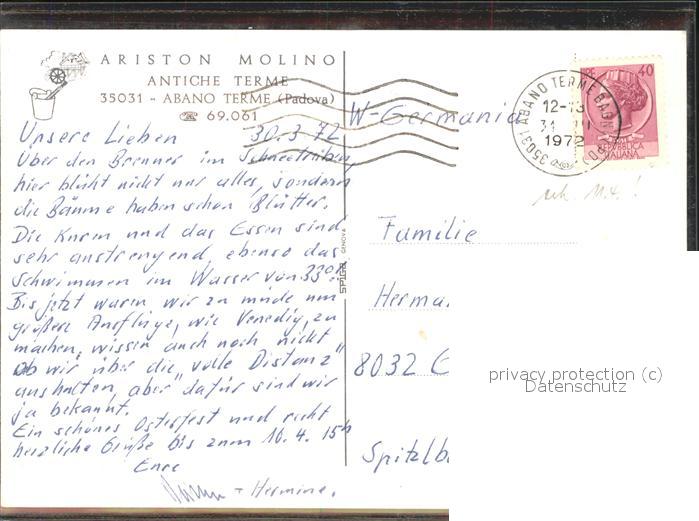 ARISTON MOLINO
ANTICHE TERME
35031 - ABANO TERME (Padova)
☎ 69.061
Unsere Lieben 30.3.72
Über den Brenner im Schneetreiben,
hier blüht nicht nur alles, sondern
die Bäume haben schon Blätter.
Die Kuren und das Essen sind
sehr anstrengend, ebenso das
Schwimmen im Wasser von 33°.
Bis jetzt waren wir zu müde um
größere Ausflüge, wie Venedig, zu
machen, wissen auch noch nicht
ob wir über die "volle Distanz"
aushalten, aber dafür sind wir
ja bekannt.
Ein schönes Osterfest und recht
herzliche Grüße bis zum 10.4. 15h
Eure
+ Hermine.
SPIGA GENOVA
W-Germania
35031 ABANO TERME BAGNI (PD)
12-13
1972
40
REPUBBLICA
ITALIANA
Familie
Herma
8032 G
Spitzlb
privacy protection (c)
Datenschutz